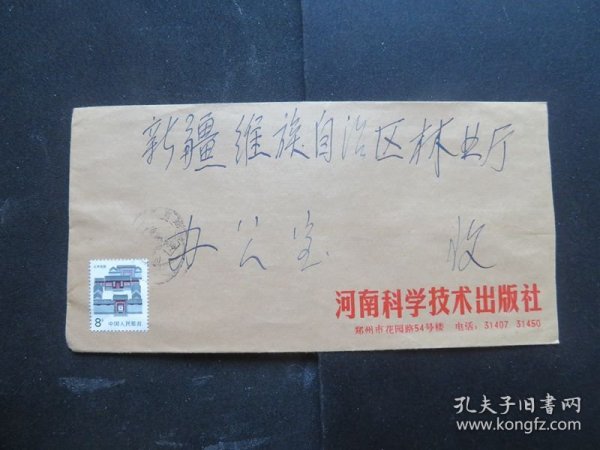 新疆维族自治区林业厅
办公室 收
河南科学技术出版社
郑州市花园路54号楼 电话：31407 31450
8分 中国人民邮政
孔夫子旧书网
www.kongfz.com